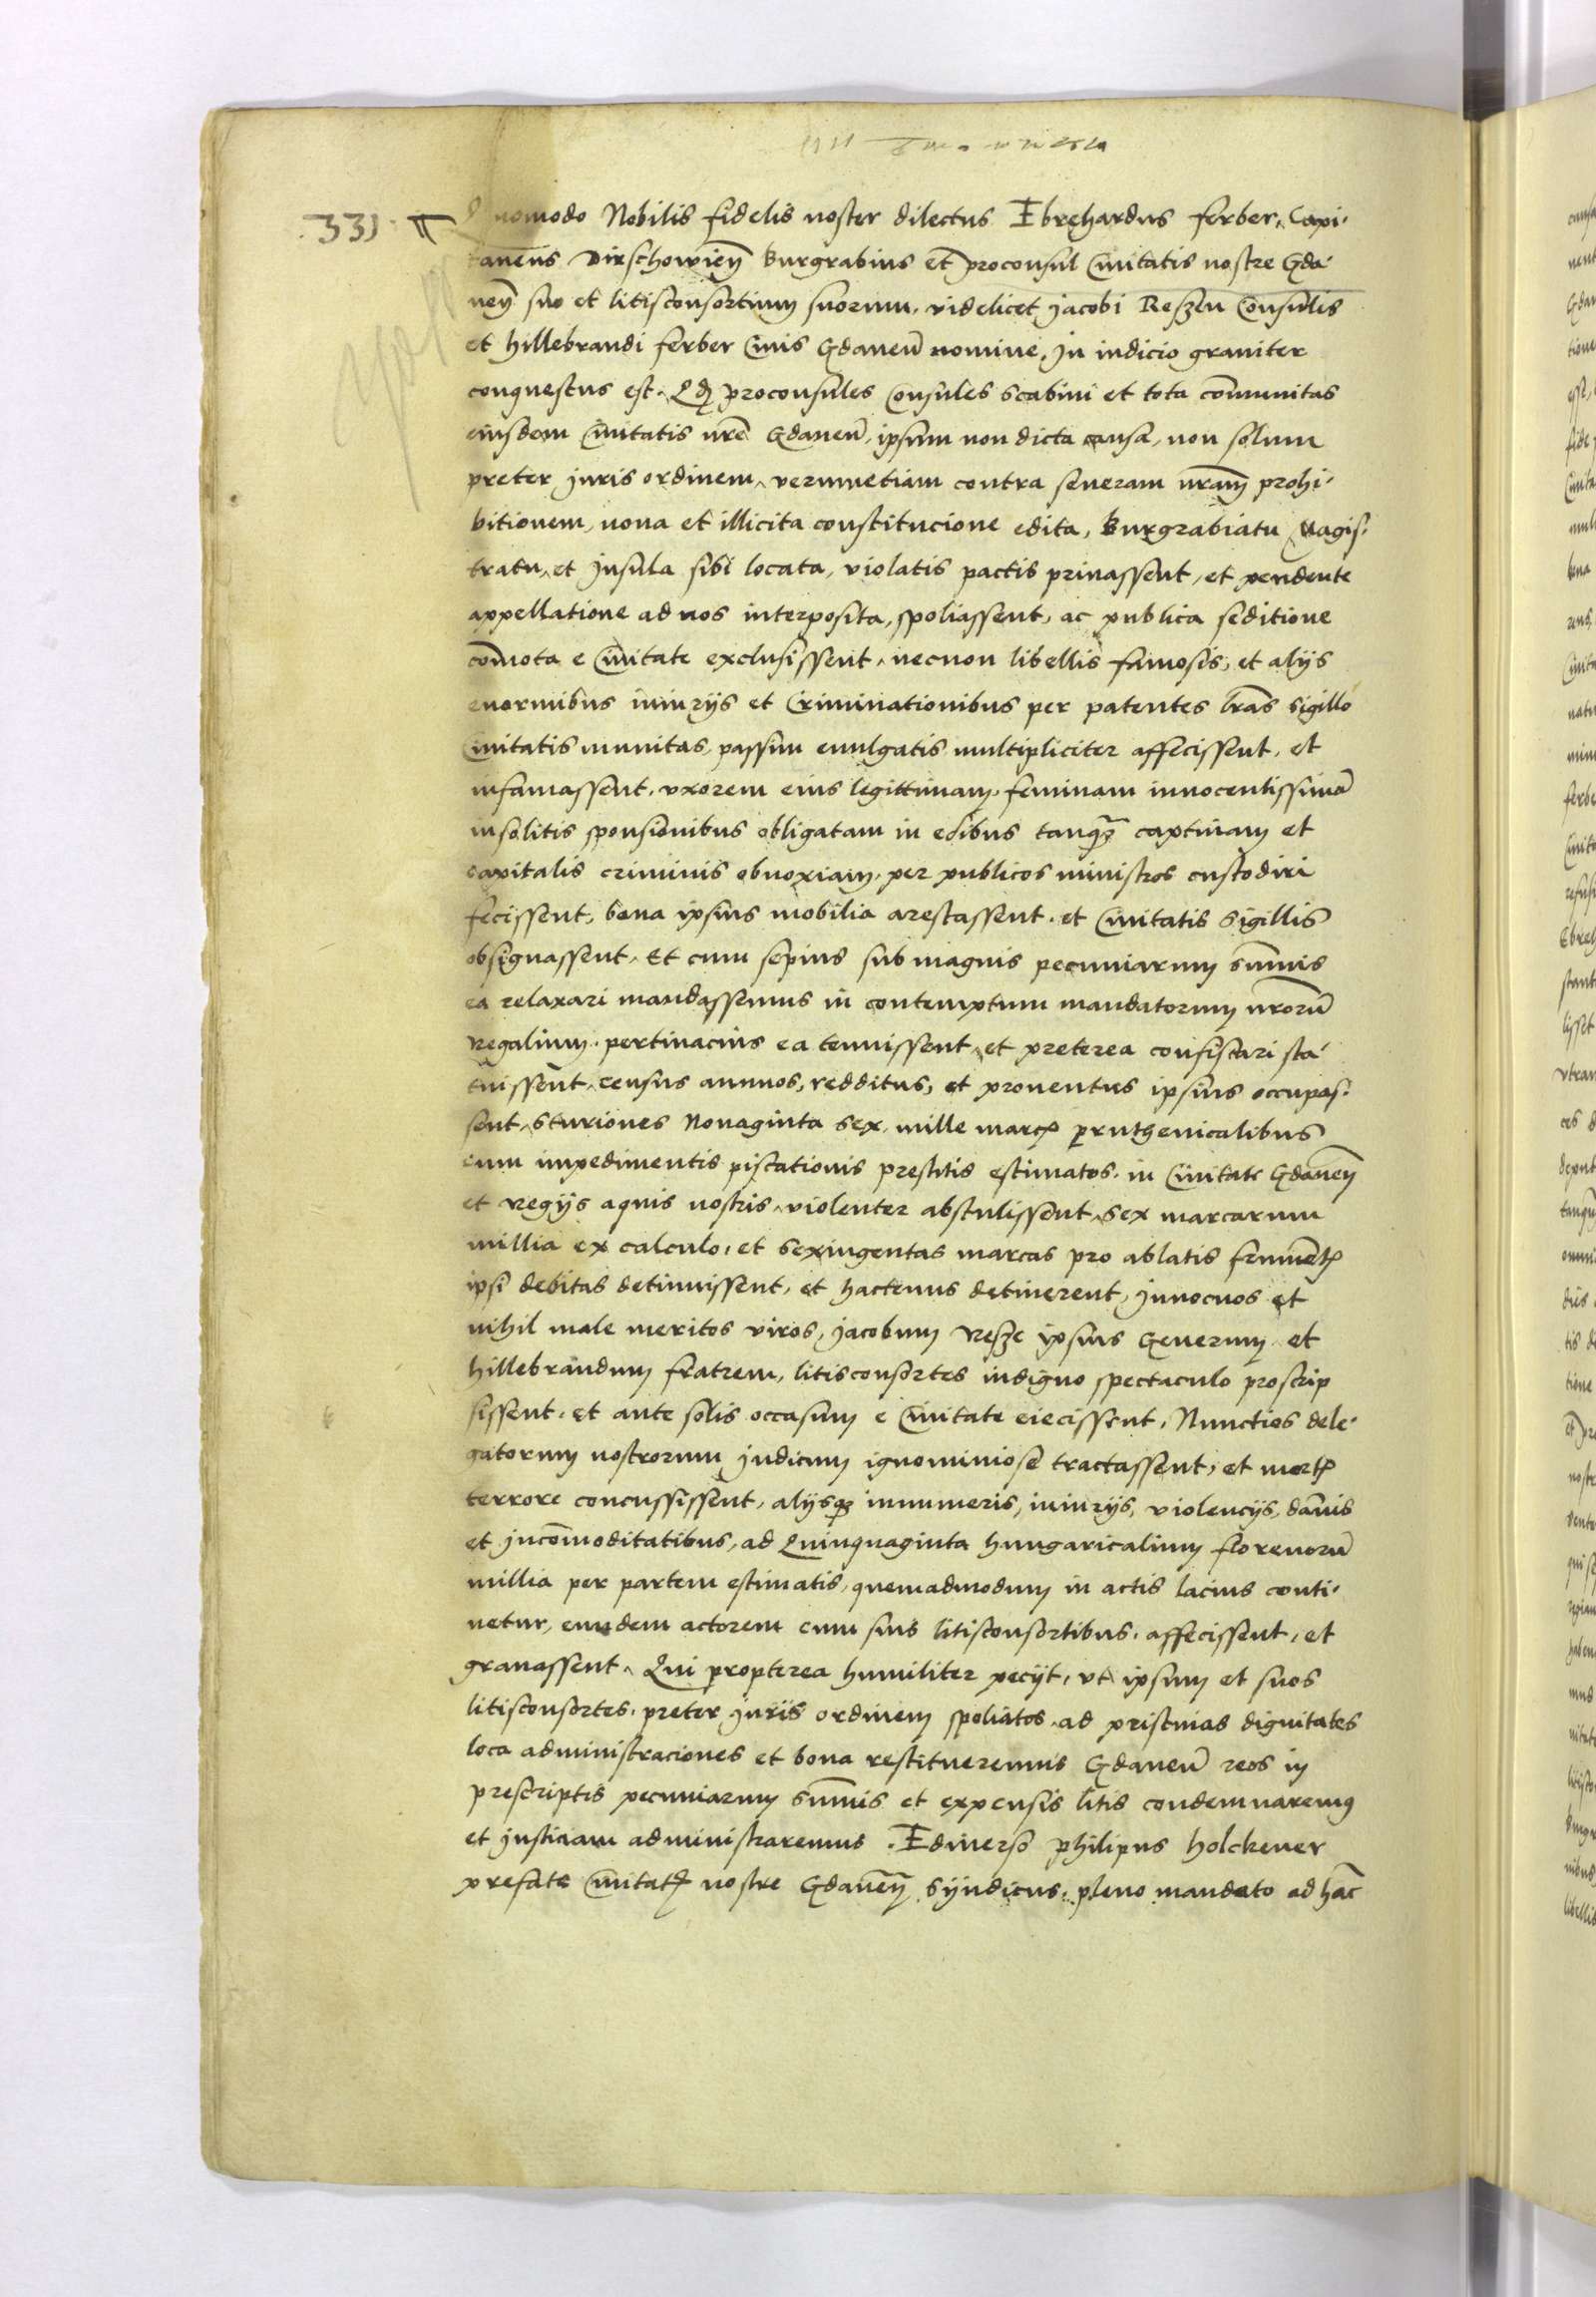 331.
Quomodo Nobilis fidelis noster dilectus Ebrehardus ferber, Capi-
taneus Dirschowieñ Burgrabius et proconsul Ciuitatis nostre Gda-
neñ suo et litisconsortium suorum, videlicet Jacobi Reszen Consulis
et Hillebrandi ferber Ciuis Gdaneñ nomine, in iudicio grauiter
conquestus est, Qđ proconsules Consules scabini et tota cōmunitas
eiusdem Ciuitatis nrē Gdaneñ, ipsum non dicta causa, non solum
preter juris ordinem, verumetiam contra seueram nrām prohi-
bitionem, noua et illicita constitucione edita, Burgrabiatu Magis-
tratu, et Jnsula sibi locata, violatis pactis priuassent, et pendente
appellatione ad nos interposita, spoliassent, ac publica seditione
cōmota e Ciuitate exclusissent, necnon libellis famosis, et alijs
enormibus iniurijs et Criminationibus per patentes lrās sigillo
Ciuitatis munitas, passim euulgatis multipliciter affecissent, et
infamassent, vxorem eius legittimam, feminam innocentissimā
insolitis sponsionibus obligatam in edibus tanq̄ captiuam et
capitalis criminis obnoxiam, per publicos ministros custodiri
fecissent, bona ipsius mobilia arestassent, et Ciuitatis Sigillis
obsignassent, Et cum sepius sub magnis pecuniarum sūmis
ea relaxari mandassemus in contemptum mandatorum nrorū
Regalium, pertinacius ea tenuissent, et preterea confiscari sta-
tuissent, census annuos, redditus, et prouentus ipsius occupas-
sent, Sturiones Nonaginta sex mille marcꝭ pruthenicalibus
cum impedimentis piscationis prestitis estimatos, in Ciuitate Gdaneñ
et Regijs aquis nostris, violenter abstulissent, Sex marcarum
millia ex calculo, et Sexingentas marcas pro ablatis frumentꝭ
ipsi debitas detinuissent, et hactenus detinerent, Jnnocuos et
nihil male meritos viros, Jacobum Resze ipsius Generum, et
Hillebrandum fratrem, litisconsortes indigno spectaculo proscrip
sissent, et ante solis occasum e Ciuitate eiecissent, Nunctios dele-
gatorum nostrorum Judicum ignominiose tractassent, et mortꝭ
terrore concussissent, alijsqꝫ innumeris, iniurijs, violencijs, dānis
et Jncōmoditatibus, ad Quinquaginta hungaricalium florenorū
millia per partem estimatis, quemadmodum in actis lacius conti-
netur, eundem actorem cum suis litisconsortibus, affecissent, et
grauassent, Qui propterea humiliter pecijt, vt ipsum et suos
litisconsortes, preter juris ordinem spoliatos, ad pristinas dignitates
loca administraciones et bona restitueremus Gdaneñ reos in
prescriptis pecuniarum sūmis et expensis litis condemnaremꝰ
et justiciam administraremus. Ediuerso philipus Holckener
prefate Ciuitatꝭ nostre Gdaneñ Syndicus, pleno mandato ad hāc